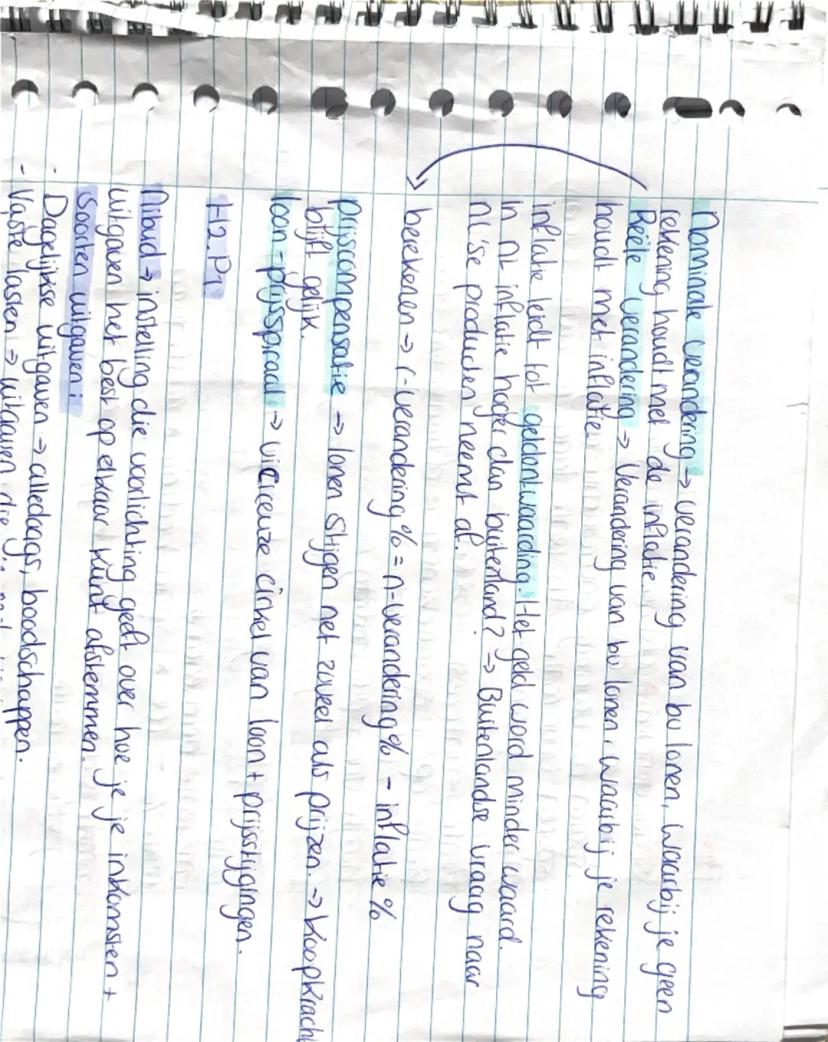 Nominale verandering → verandering van bv lonen, waarbij je geen
rekening houdt met de inflatie.
Reële verandering → Verandering van bv lonen, waarbij je rekening
houdt met inflatie.
inflatie leidt tot geldontwaarding. Het geld word minder waard.
In NL inflatie hoger dan buitenland? → Buitenlandse vraag naar
NL'se producten neemt af.
berekenen → r-verandering% = n-verandering% - inflatie%
prijscompensatie → lonen stijgen net zoveel als prijzen → koopkracht
blijft gelijk.
loon-prijsspiraal → vicieuze cirkel van loon + prijsstijgingen.
H2. P1
Nibud → instelling die voorlichting geeft over hoe je je inkomsten +
uitgaven het best op elkaar kunt afstemmen.
Soorten uitgaven:
- Dagelijkse uitgaven → alledaags, boodschappen.
- Vaste lasten → uitgaven die